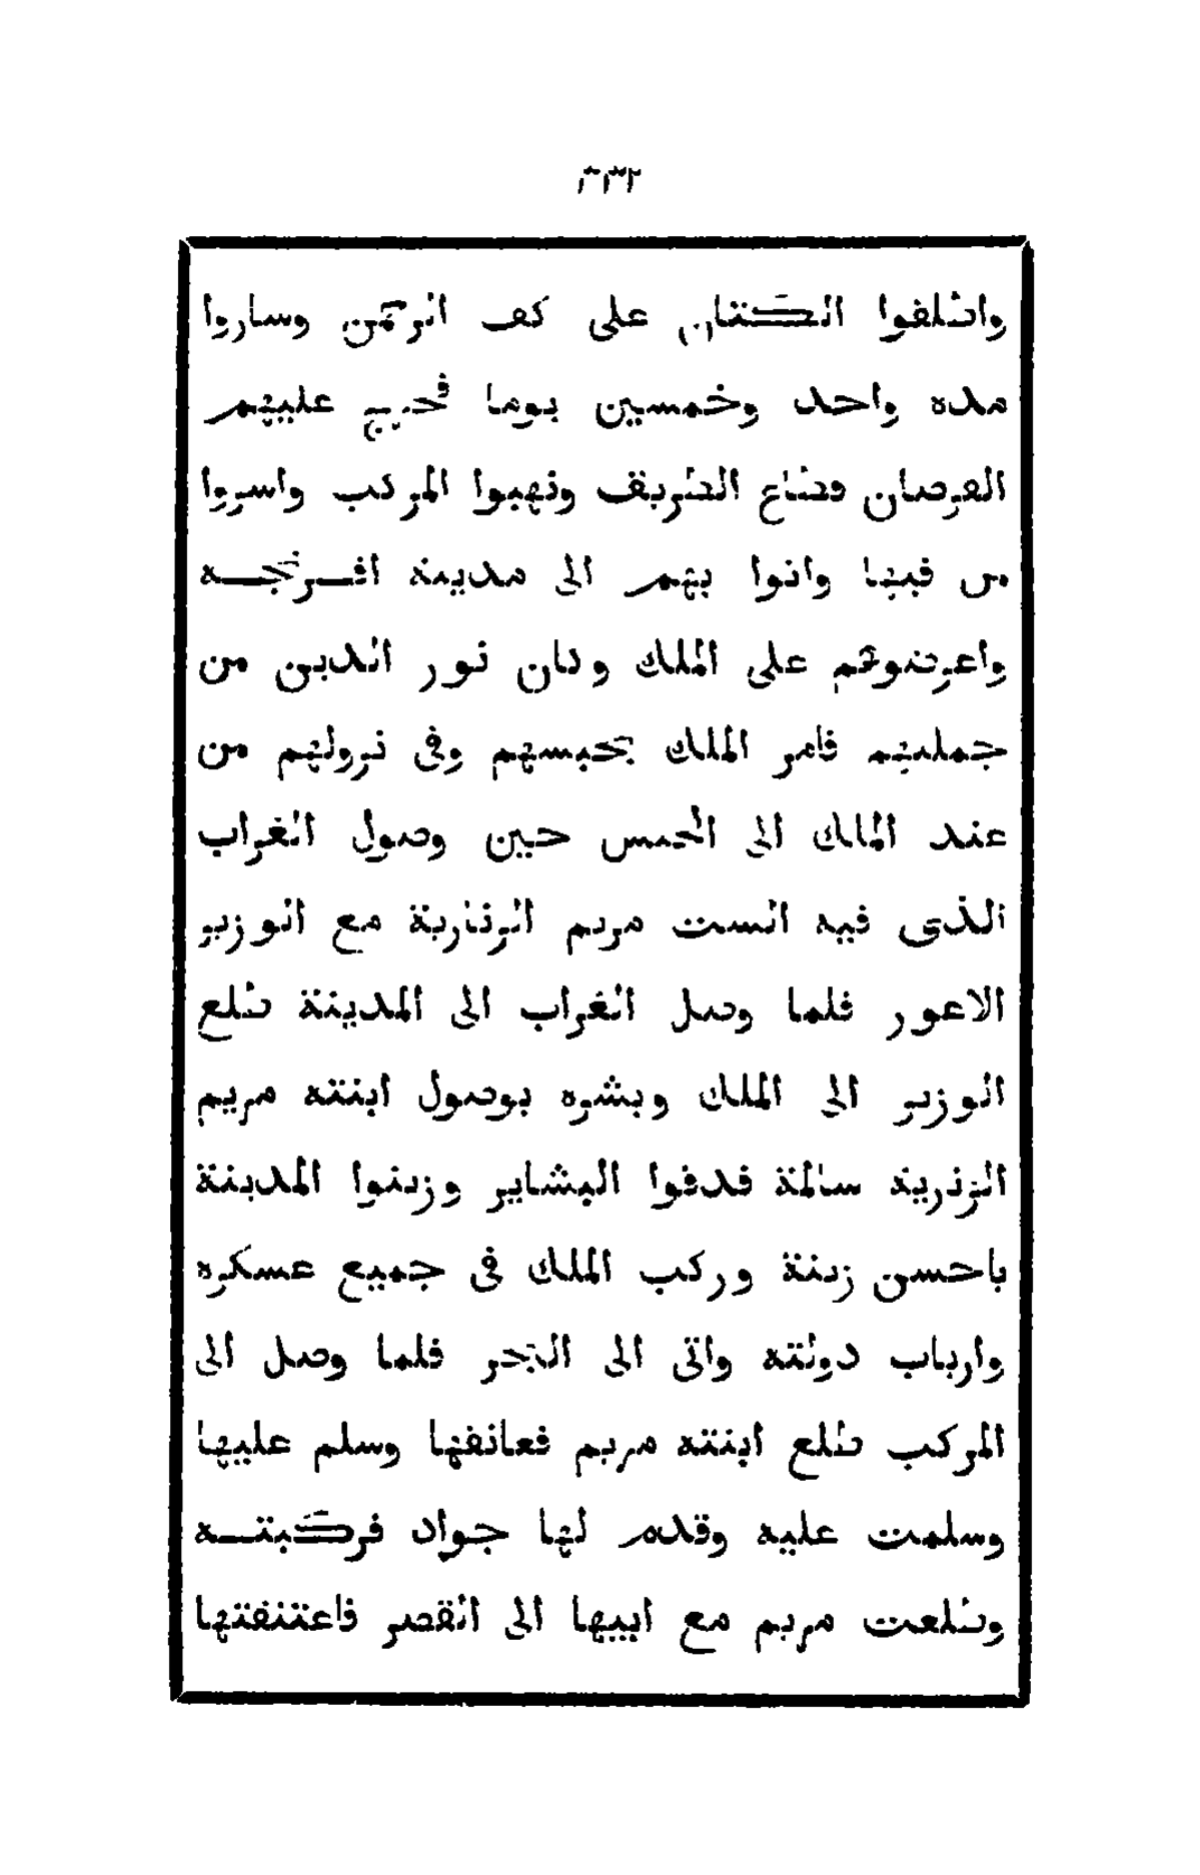 ٣٣٢
واطلقوا الكتان على كف الرحمن وساروا
مده واحد وخمسين يوما فخرج عليهم
القرصان قطاع الطريق ونهبوا المركب واسروا
من فيها واتوا بهم الى مدينة افرنجه
واعرضوهم على الملك وكان نور الدين من
جملتهم فامر الملك بحبسهم وفى نزولهم من
عند الملك الى الحبس حين وصول الغراب
الذى فيه الست مريم الزنارية مع الوزير
الاعور فلما وصل الغراب الى المدينة طلع
الوزير الى الملك وبشره بوصول ابنته مريم
الزنرية سالمة فدقوا البشاير وزينوا المدينة
باحسن زينة وركب الملك فى جميع عسكره
وارباب دولته واتى الى البحر فلما وصل الى
المركب طلع ابنته مريم فعانقها وسلم عليها
وسلمت عليه وقدم لها جواد فركبته
وطلعت مريم مع ابيها الى القصر فاعتنقتها